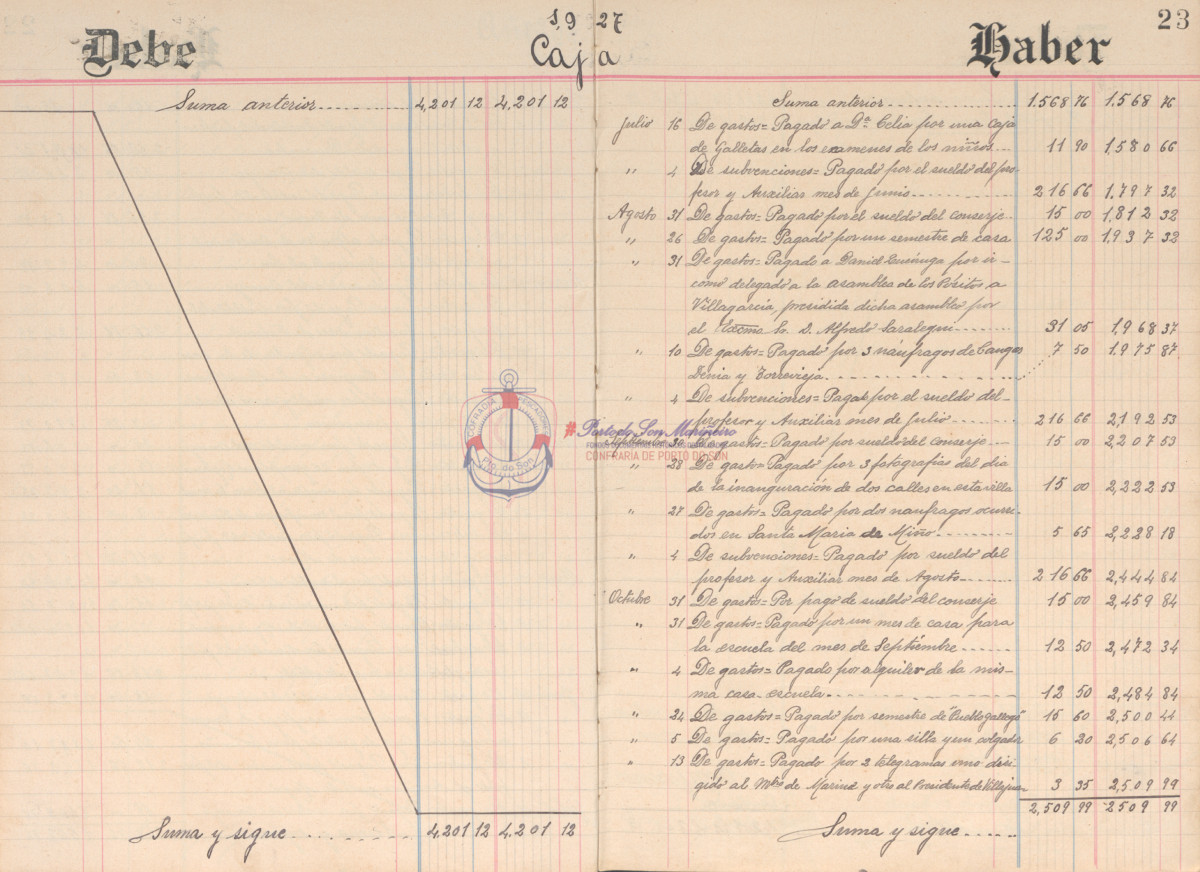 1927
23
Debe
Caja
Haber
Suma anterior 4,201 12 4,201 12
Suma y sigue 4,201 12 4,201 12
Suma anterior 1.568 76 1,568 76
Julio 16 De gastos = Pagado a Dª Celia por una caja
de Galletas en los examenes de los niños 11 90 1,580 66
" 4 De subvenciones = Pagado por el sueldo del pro-
fesor y Auxiliar mes de Junio 216 66 1,797 32
Agosto 31 De gastos = Pagado por el sueldo del conserje 15 00 1,812 32
" 26 De gastos = Pagado por un semestre de casa 125 00 1,937 32
" 31 De gastos = Pagado a Daniel por ir
como delegado a la asamblea de los Pósitos a
Villagarcia, presidida dicha asamblea por
el Excmo Sr. D. Alfredo Saralegui 31 05 1,968 37
" 10 De gastos = Pagado por 3 náufragos de Cangas 7 50 1,975 87
Denia y Torrevieja
" 4 De subvenciones = Pagado por el sueldo del
profesor y Auxiliar mes de Julio 216 66 2,192 53
Septiembre 30 De gastos = Pagado por sueldo del conserje 15 00 2,207 53
" 28 De gastos = Pagado por 3 fotografias del dia
de la inauguración de dos calles en esta villa 15 00 2,222 53
" 27 De gastos = Pagado por dos naufragos ocurri-
dos en Santa Maria de Miño 5 65 2,228 18
" 4 De subvenciones = Pagado por sueldo del
profesor y Auxiliar mes de Agosto 216 66 2,444 84
Octubre 31 De gastos = Por pago de sueldo del conserje 15 00 2,459 84
" 31 De gastos = Pagado por un mes de casa para
la escuela del mes de Septiembre 12 50 2,472 34
" 4 De gastos = Pagado por alquiler de la mis-
ma casa-escuela 12 50 2,484 84
" 24 De gastos = Pagado por semestre de "Pueblo gallego" 15 60 2,500 44
" 5 De gastos = Pagado por una silla y un colgador 6 20 2,506 64
" 13 De gastos = Pagado por 2 telegramas uno diri-
gido al de Marina y otro al Presidente de Villajuan 3 35 2,509 99
2,509 99 2509 99
Suma y sigue
COFRADIA PESCADORES
Pto. do Son
#Porto do Son Mariñeiro
CONFRARÍA DE PORTO DO SON